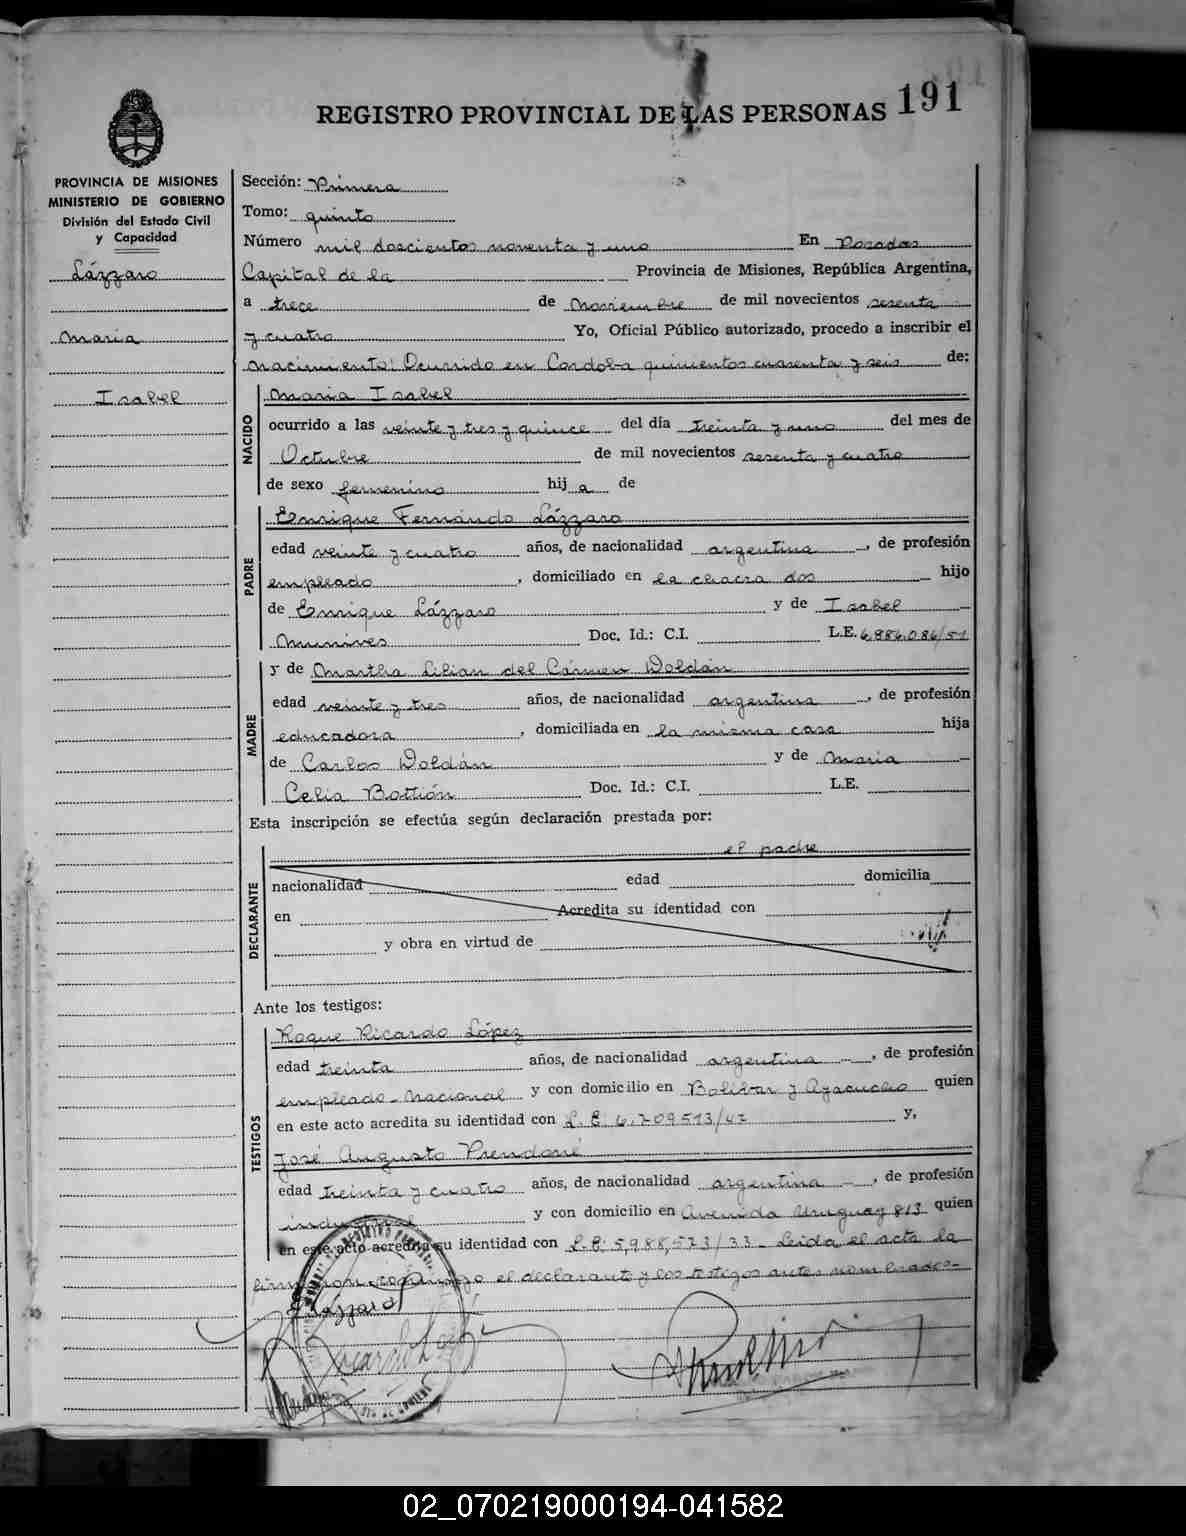 191
REGISTRO PROVINCIAL DE LAS PERSONAS
PROVINCIA DE MISIONES
MINISTERIO DE GOBIERNO
División del Estado Civil
y Capacidad
Lázzaro
Maria
Isabel
Sección: Primera
Tomo: quinto
Número mil doscientos noventa y uno En Posadas
Capital de la Provincia de Misiones, República Argentina,
a trece de Noviembre de mil novecientos sesenta
y cuatro Yo, Oficial Público autorizado, procedo a inscribir el
nacimiento: Ocurrido en Cordoba quinientos cuarenta y seis de:
NACIDO
Maria Isabel
ocurrido a las veinte y tres y quince del día treinta y uno del mes de
Octubre de mil novecientos sesenta y cuatro
de sexo femenino hij a de
PADRE
Enrique Fernándo Lázzaro
edad veinte y cuatro años, de nacionalidad argentina, de profesión
empleado, domiciliado en la chacra dos hijo
de Enrique Lázzaro y de Isabel
Munives Doc. Id.: C.I. L.E.
MADRE
y de Martha Lilian del Cármen Doldán
edad veinte y tres años, de nacionalidad argentina, de profesión
educadora, domiciliada en la misma casa hija
de Carlos Doldán y de Maria
Celia Doc. Id.: C.I. L.E.
Esta inscripción se efectúa según declaración prestada por:
DECLARANTE
el padre
nacionalidad edad domicilia
en Acredita su identidad con
y obra en virtud de
Ante los testigos:
TESTIGOS
Roque Ricardo López
edad treinta años, de nacionalidad argentina, de profesión
empleado nacional y con domicilio en Bolívar y Ayacucho quien
en este acto acredita su identidad con L.E. y,
José Augusto
edad treinta y cuatro años, de nacionalidad argentina, de profesión
y con domicilio en Avenida Uruguay 813 quien
en este acto acredita su identidad con L.E. 5,988,573/33 - Leida el acta la
el declarante y los testigos antes nombrados-
Lázzaro
02_070219000194-041582